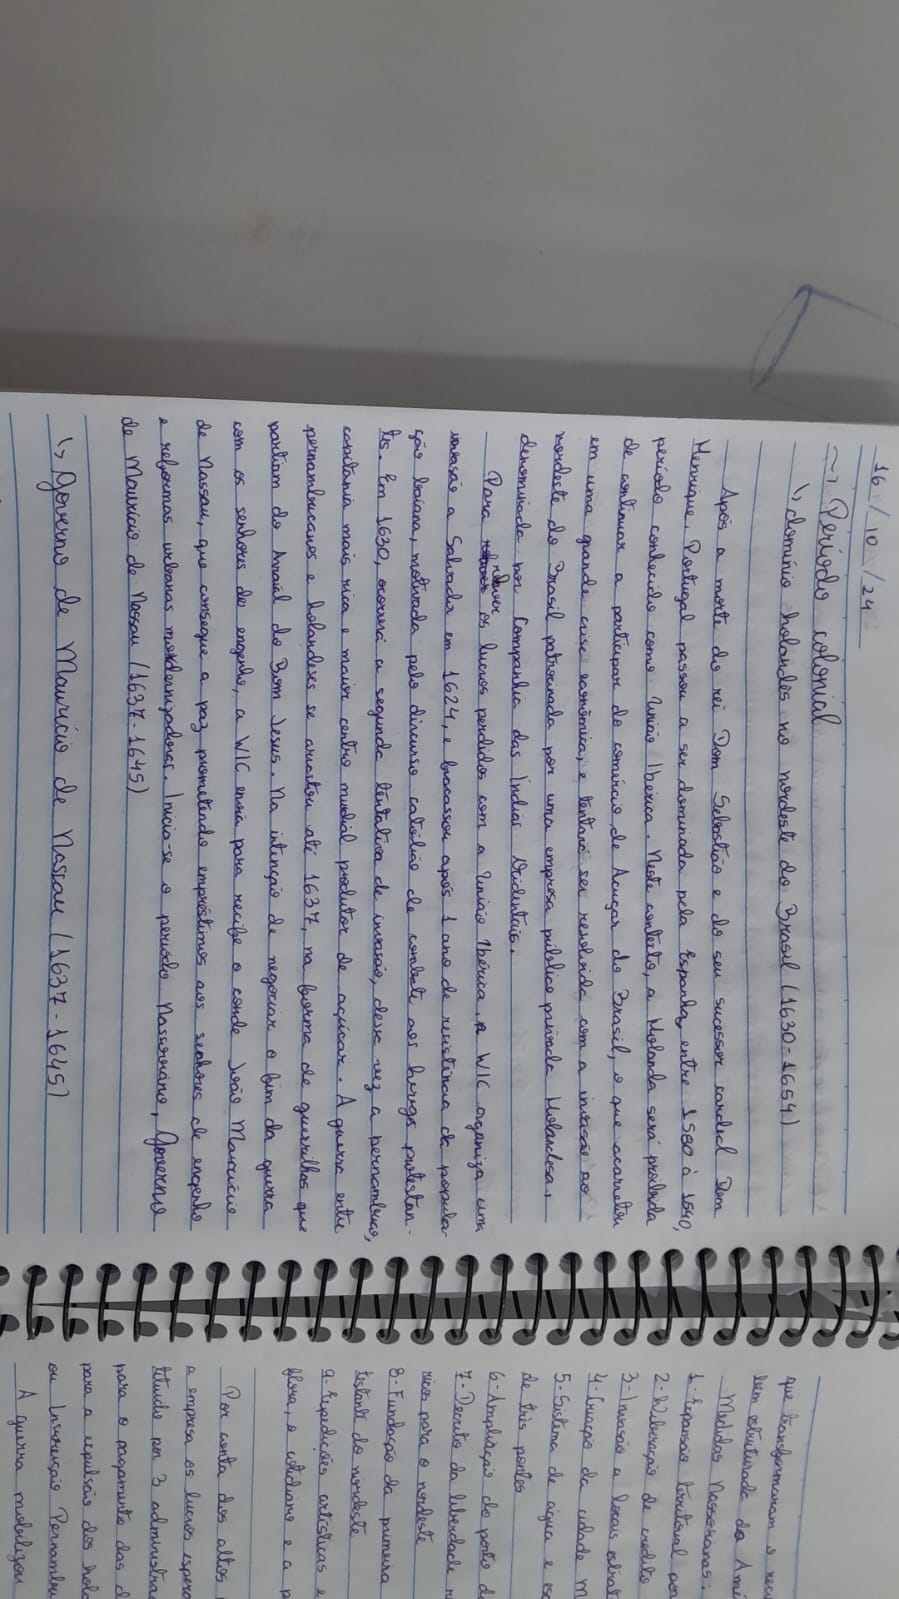 16/10/24
~> Período colonial
↳ domínio holandês no nordeste do Brasil (1630-1654)
Após a morte do rei Dom Sebastião e do seu sucessor cardeal Dom
Henrique, Portugal passou a ser dominada pela Espanha, entre 1580 à 1640,
período conhecido como União Ibérica. Neste contexto, a Holanda será proibida
de continuar a participar do comércio de Açucar do Brasil, o que acarretou
em uma grande crise econômica, e tentará ser resolvida com a invasão ao
nordeste do Brasil patrocinada por uma empresa público privada Holandesa,
denominada por Companhia das Índias Ocidentais.
Para rehaver os lucros perdidos com a União Ibérica, a WIC organiza uma
invasão a Salvador em 1624, e fracassou após 1 ano de resistência da popula-
ção baiana, motivada pelo discurso católico de combate aos hereges protestan-
tes. Em 1630, ocorrerá a segunda tentativa de invasão, dessa vez a pernambuco,
capitania mais rica e maior centro mundial produtor de açúcar. A guerra entre
pernambucanos e holandeses se arrastou até 1637, na forma de guerrilhas que
partiam do Arraial do Bom Jesus. Na intenção de negociar o fim da guerra
com os senhores de engenho, a WIC envia para recife o conde João Maurício
de Nassau, que consegue a paz prometendo empréstimos aos senhores de engenho
e reformas urbanas modernizadoras. Inicia-se o período Nassoviano, Governo
de Maurício de Nassau (1637-1645)
↳ Governo de Maurício de Nassau (1637-1645)
que transformaram o
bem estruturada da Amé
Medidas Nassovianas:
1- Expansão territorial
2- Liberação de credito
3- Invasão a locais
4- Criação da cidade M
5- Sistema de água e
de três pontes
6- Ampliação do porto d
7- Decreto da liberdade
para o nordeste
8- Fundação da primeira
do nordeste
9- Expedições artísticas e
flora, o cotidiano e a p
Por conta dos altos
a empresa os lucros
por 3
para o pagamento das d
para a expulsão dos hola
ou Insurreição Pernambu
A guerra mobilizou